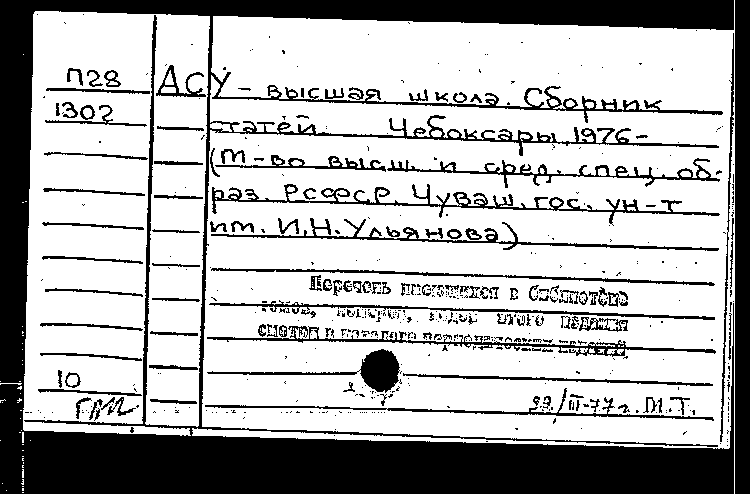 П28 АСУ - высшая школа. Сборник
1302 статей. Чебоксары, 1976-
(М-во высш. и сред. спец. об-
раз. РСФСР. Чуваш. гос. ун-т
им. И.Н.Ульянова)
Перечень имеющихся в библиотеке
томов, номеров, годов этого издания
смотри в каталоге периодических изданий
10
/III-77 г. М.Т.